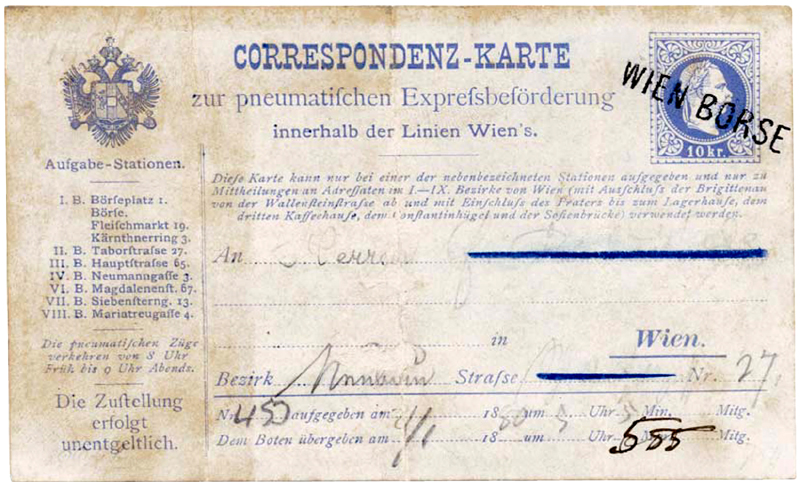 CORRESPONDENZ-KARTE
zur pneumatiſchen Expreſsbeförderung
innerhalb der Linien Wien's.
WIEN BÖRSE
10 kr.
Aufgabe-Stationen.
I. B. Börſeplatz 1.
Börſe.
Fleiſchmarkt 19.
Kärnthnerring 3.
II. B. Taborſtraſse 27.
III. B. Hauptſtraſse 65.
IV. B. Neumanngaſſe 3.
VI. B. Magdalenenſt. 67.
VII. B. Siebenſterng. 13.
VIII. B. Mariatreugaſſe 4.
Die pneumatiſchen Züge
verkehren von 8 Uhr
Früh bis 9 Uhr Abends.
Die Zuſtellung
erfolgt
unentgeltlich.
Dieſe Karte kann nur bei einer der nebenbezeichneten Stationen aufgegeben und nur zu
Mittheilungen an Adreſſaten im I.—IX. Bezirke von Wien (mit Ausſchluſs der Brigittenau
von der Wallenſteinſtraſse ab und mit Einſchluſs des Praters bis zum Lagerhauſe, dem
dritten Kaffeehauſe, dem Conſtantinhügel und der Sofienbrücke) verwendet werden.
An Herrn
in Wien.
Bezirk Straſse Nr. 27
Nr. 450 aufgegeben am 18 um Uhr Min. Mitg.
Dem Boten übergeben am 18 um Uhr 555 Mitg.